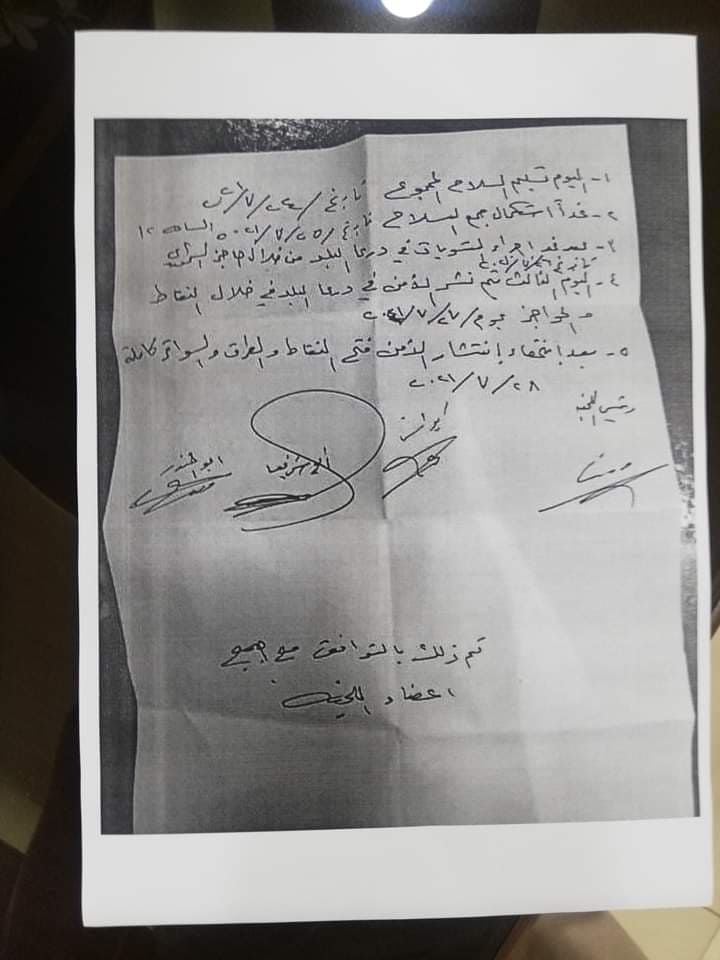 ١- اليوم تسليم السلاح المجموع تاريخ ٢٤/٧/٢٠٢١
٢- غداً استكمال جمع السلاح تاريخ ٢٥/٧/٢٠٢١ الساعه ١٢
٣- بعد غد اجراء تسويات في درعا البلد من خلال حاجز السرايا
تاريخ ٢٦/٧/٢٠٢١
٤- اليوم الثالث يتم نشر الأمن في درعا البلد في خلال النقاط
والحواجز يوم ٢٧/٧/٢٠٢١
٥- بعد إنتهاء إنتشار الأمن فتح النقاط والطرق والسواتر كاملة
٢٨/٧/٢٠٢١
رئيس اللجنه
ابو منذر
تم ذلك بالتوافق مع جميع
اعضاء اللجنه